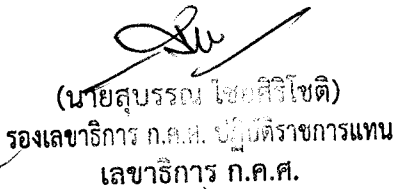 (นายสุบรรณ ไชยศิริโชติ)
รองเลขาธิการ ก.ค.ศ. ปฏิบัติราชการแทน
เลขาธิการ ก.ค.ศ.